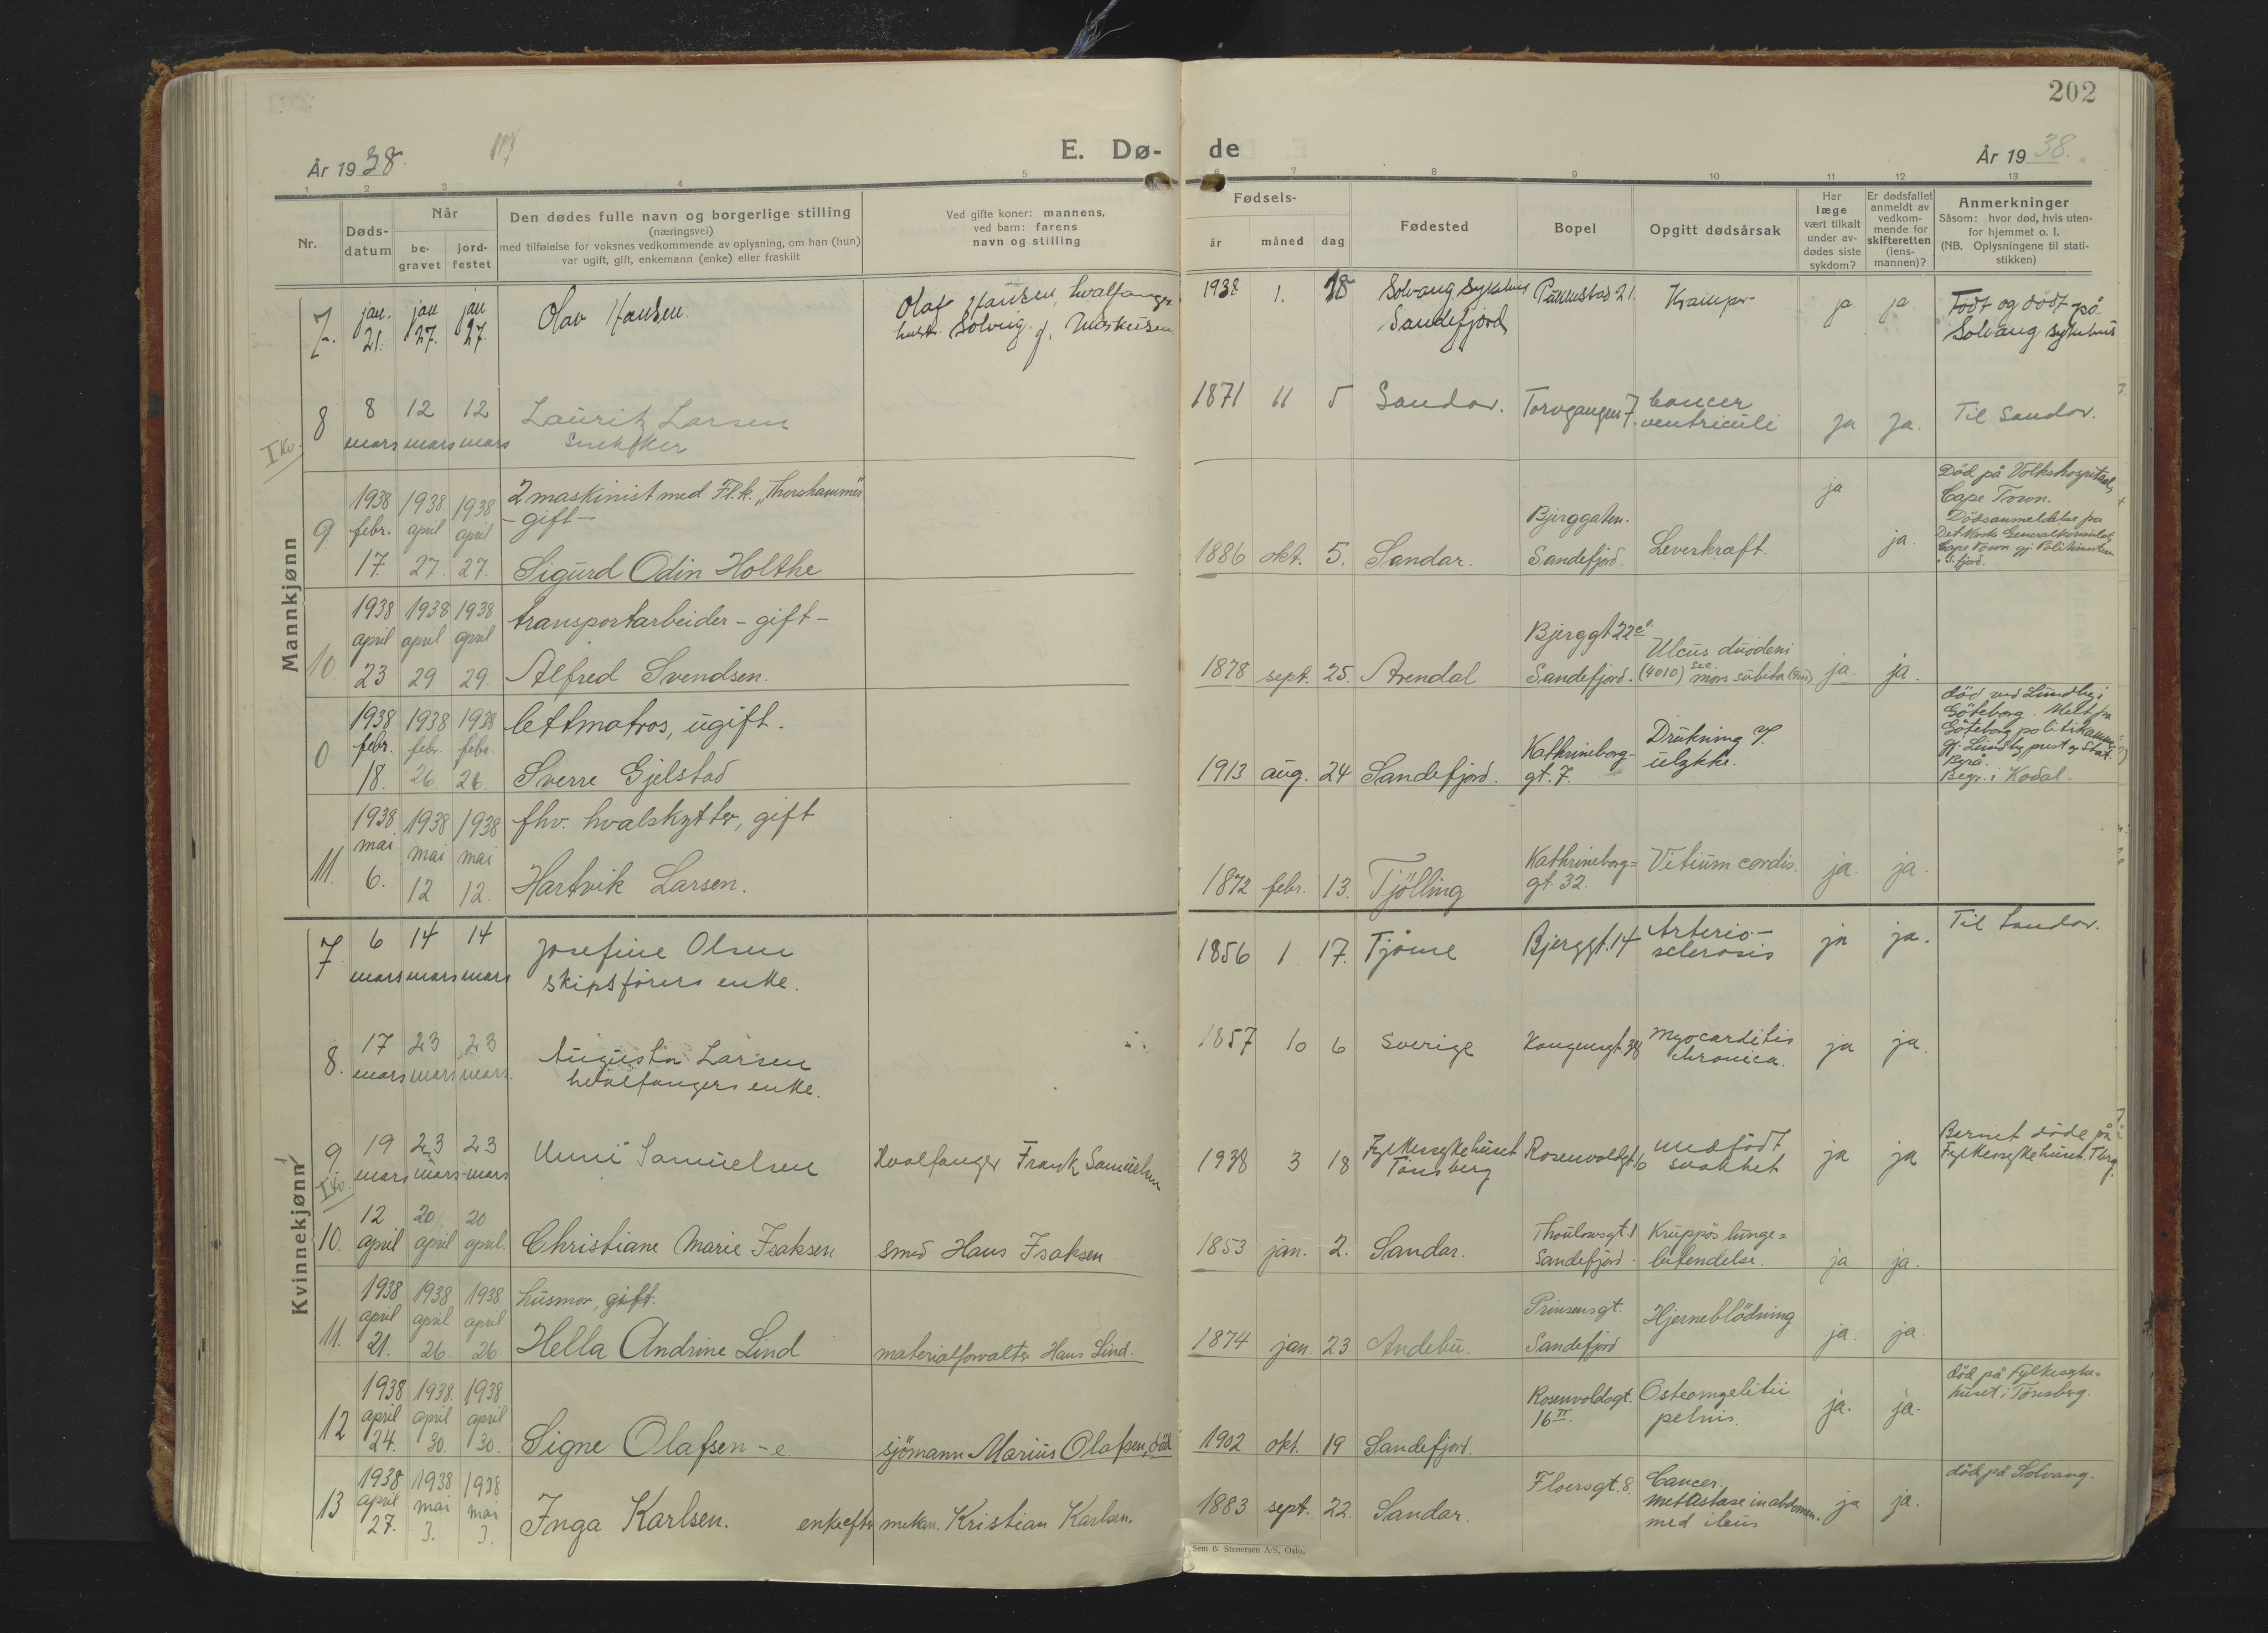 202
År 1938.
E. Dø-
de
År 1938.
1 2 3 4 5 6 7 8 9 10 11 12 13
Nr.
Døds-
datum
Når
be-
gravet
jord-
festet
Den dødes fulle navn og borgerlige stilling
(næringsvei)
med tilføielse for voksnes vedkommende av oplysning, om han (hun)
var ugift, gift, enkemann (enke) eller fraskilt
Ved gifte koner: mannens,
ved barn: farens
navn og stilling
Fødsels-
år måned dag
Fødested
Bopel
Opgitt dødsårsak
Har
læge
vært tilkalt
under av-
dødes siste
sykdom?
Er dødsfallet
anmeldt av
vedkom-
mende for
skifteretten
(lens-
mannen)?
Anmerkninger
Såsom: hvor død, hvis uten-
for hjemmet o. l.
(NB. Oplysningene til stati-
stikken)
Mannkjønn
7. jan. 21. jan 27. jan 27.
Olav Hansen.
Olaf Hansen, hvalfanger
hustr. Solveig f.
1938 1. 18
Solvang sykehus
Sandefjord
Krampe
ja ja
Født og død på
Solvang sykehus
8 8 mars 12 mars 12 mars
Lauritz Larsen
Snekker
1871 11 5 Sandar.
Torvgangen 7.
Cancer
ventriculi
ja ja.
Til Sandar.
I Kv.
9. 1938 febr. 17. 1938 april 27. 1938 april 27.
2 maskinist med Fl.k. "Thorshammer"
- gift -
Sigurd Odin Holthe
1886 okt. 5. Sandar.
Bjerggaten.
Sandefjord.
Leverkræft.
ja ja.
Død på Volkshospitaal,
Cape Town.
Dødsanmeldelse fra
Det Norske Generalkonsulat,
Cape Town gj. Politimesteren
i S.fjord.
10. 1938 april 23 1938 april 29 1938 april 29.
transportarbeider - gift -
Alfred Svendsen.
1878 sept. 25. Arendal
Bjerggt 22
Sandefjord.
Ulcus duodeni
mors subita
ja. ja.
0 1938 febr. 18. 1938 febr. 26. 1938 febr. 26.
lettmatros, ugift.
Sverre Gjelstad
1913 aug. 24 Sandefjord.
Kathrineborg-
gt. 7.
Drukning
ulykke.
død ved Lundby i
Göteborg. Meldt fra
Göteborg politikammer
gj. Lundby prest og Stat.
Byrå.
Begr. i Kodal.
11. 1938 mai 6. 1938 mai 12 1938 mai 12.
fhv. hvalskytter, gift
Hartvik Larsen.
1872 febr. 13. Tjölling
Kathrineborg=
gt. 32.
Vitium cordis.
ja. ja.
Kvinnekjønn
7 6 mars 14 mars 14 mars
Josefine Olsen
skipsførers enke.
1856 1 17. Tjöme
Bjerggt. 14
Arterio-
sclerosis
ja ja.
Til Sandar.
8. 17 mars 23 mars 23 mars.
Augusta Larsen
hvalfangers enke.
1857 10 6 Sverige
Kongensgt.
Myocarditis
chronica.
ja ja.
9 19 mars 23 mars 23 mars
Unni Samuelsen
Hvalfanger Frank Samuelsen
1938 3 18
Fylkessykehuset
Tønsberg
Rosenvoldsgt.
medfødt
svakhet
ja ja
Barnet døde på
Fylkessykehuset. Tbrg.
I Kv.
10. 12 april 20 april 20 april.
Christiane Marie Isaksen
smed Hans Isaksen
1853 jan. 2. Sandar.
Thaulowsgt. 1
Sandefjord.
Kruppøs lunge=
betendelse.
ja ja.
11. 1938 april 21. 1938 april 26. 1938 april 26
husmor, gift.
Hella Andrine Lind
materialforvalter Hans Lind.
1874 jan 23 Andebu.
Prinsensgt.
Sandefjord
Hjerneblödning
ja. ja.
12 1938 april 24. 1938. april 30. 1938 april 30.
Signe Olafsen - e
sjömann Marius Olafsen, död
1902 okt. 19 Sandefjord.
Rosenvoldsgt.
16 II.
Osteomyelitii
pelvis.
ja. ja.
död på Fylkessyke=
huset i Tönsberg.
13 1938 april 27. 1938 mai 3. 1938 mai 3.
Inga Karlsen. enke efter
mekan. Kristian Karlsen.
1883 sept. 22. Sandar.
Floersgt. 8.
Cancer.
metastase in abdomen.
med ileus
ja ja.
död på Solvang.
Sem & Stenersen A/S, Oslo.